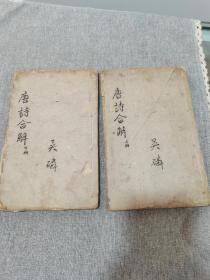 唐詩合解
吴璘
唐詩合解
吴璘